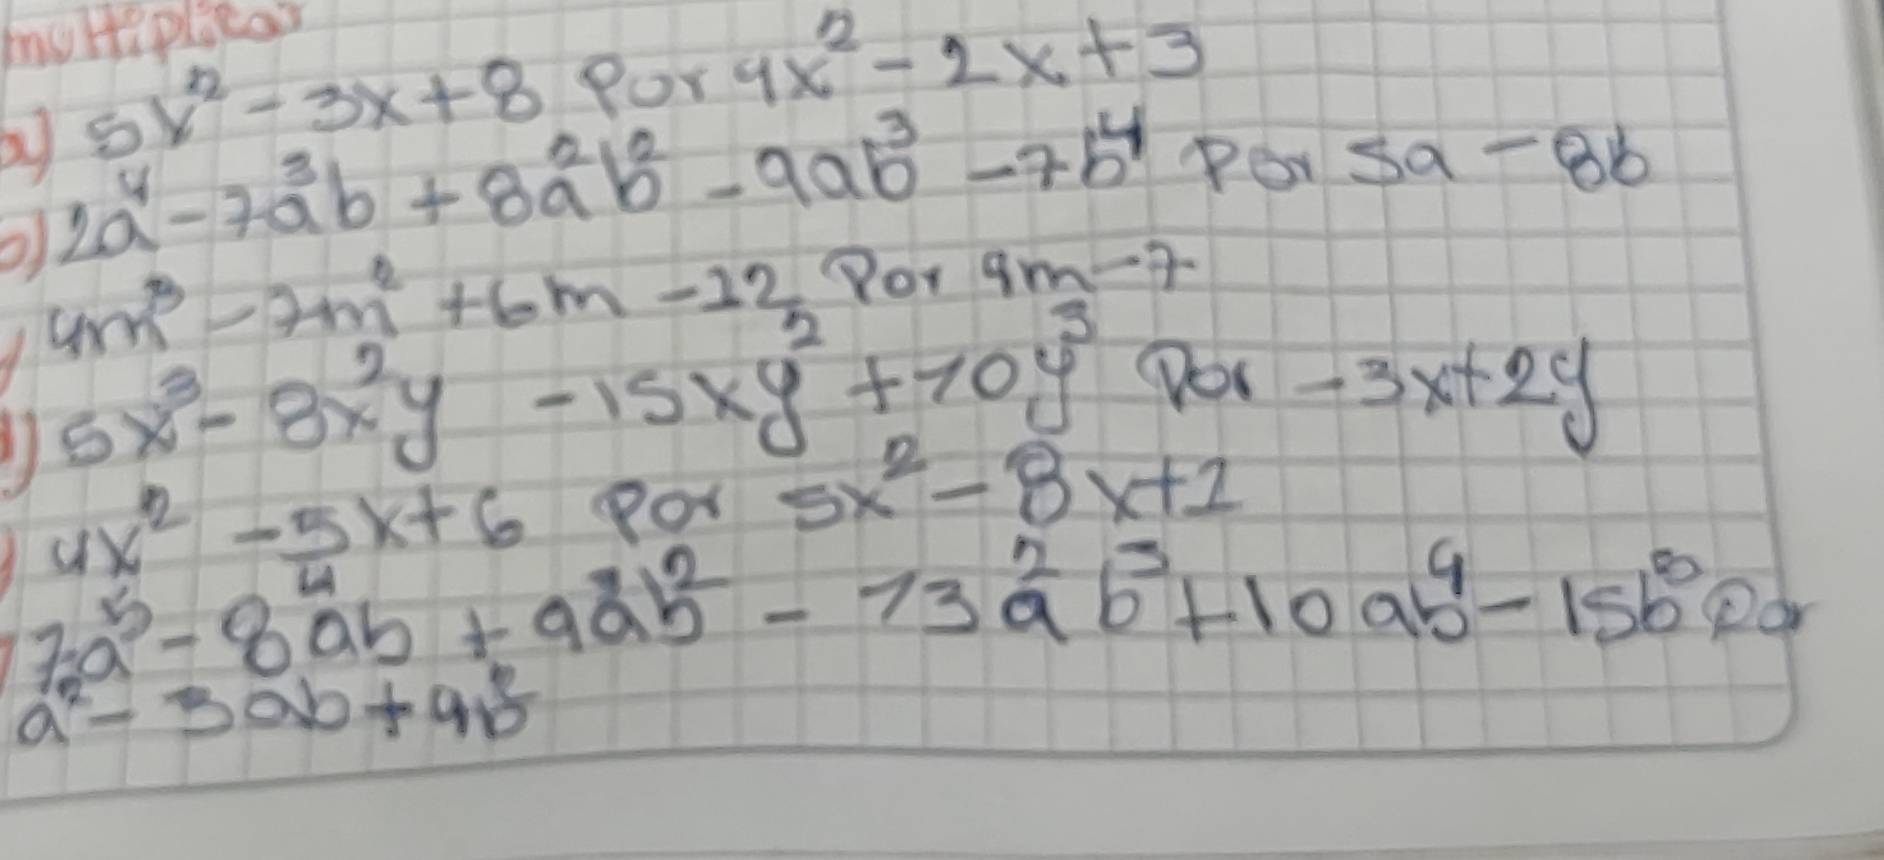 multiplicar
a) 5x² - 3x + 8 Por 9x² - 2x + 3
b) 2a⁴ - 7a³b + 8a²b² - 9ab³ - 7b⁴ Por 5a - 8b
4m³ - 7m² + 6m - 12 Por 9m - 7
d) 5x³ - 8x²y - 15xy² + 10y³ Por -3x + 2y
4x² - 5x + 6 Por 5x² - 8x + 1
7a⁵ - 8a⁴b + 9a³b² - 13a²b³ + 10ab⁴ - 15b⁵ Por
a² - 3ab + 9b²